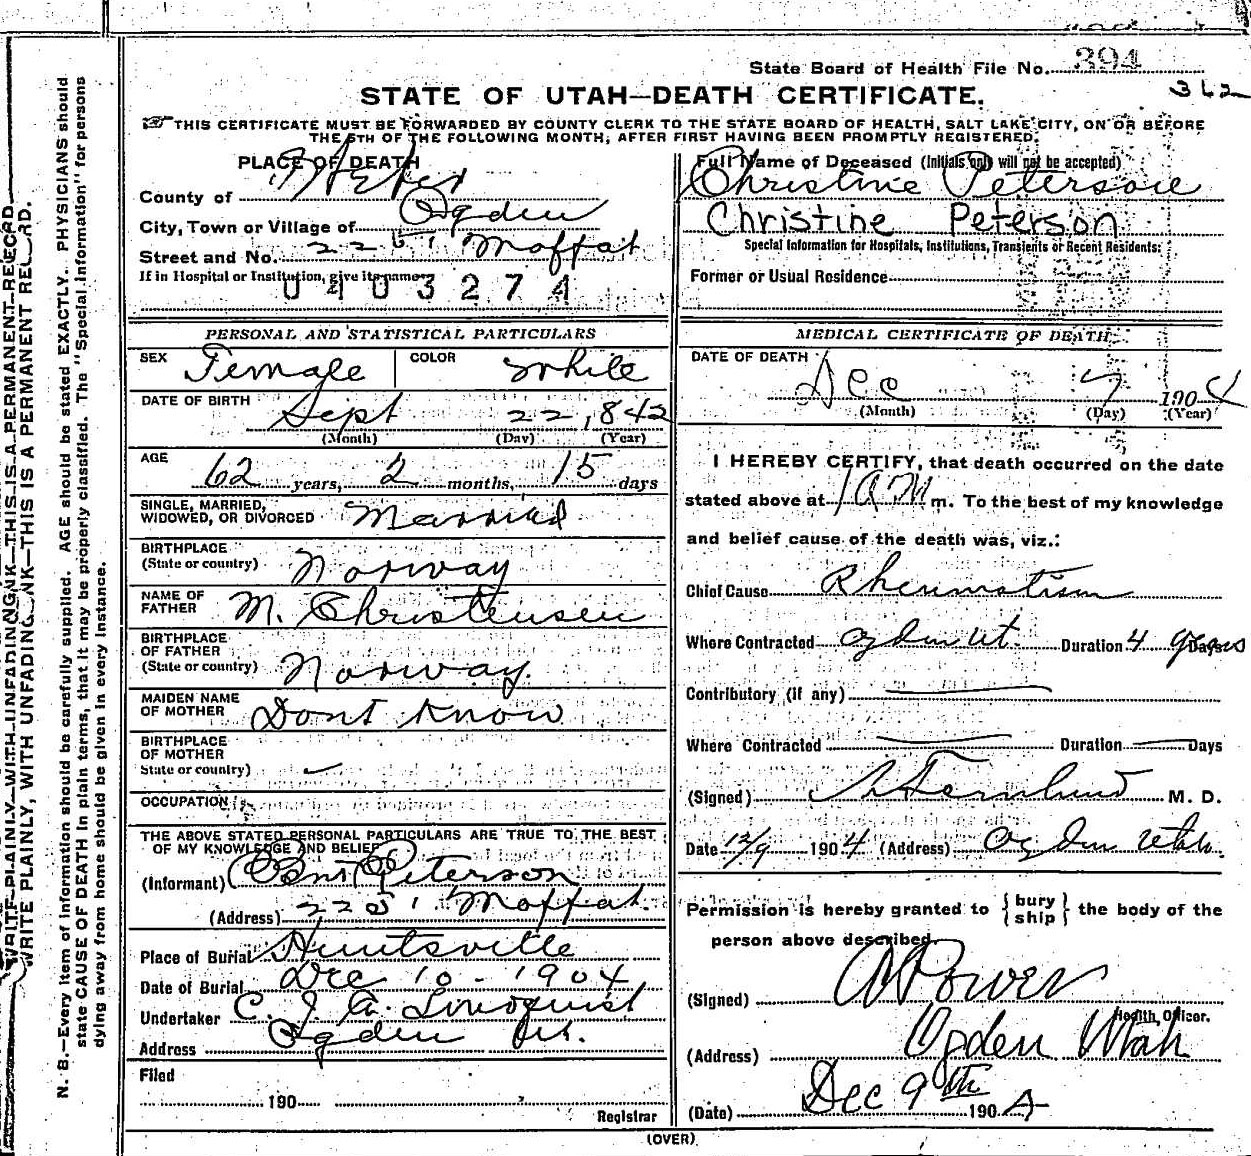 State Board of Health File No. 394
362
STATE OF UTAH—DEATH CERTIFICATE.
THIS CERTIFICATE MUST BE FORWARDED BY COUNTY CLERK TO THE STATE BOARD OF HEALTH, SALT LAKE CITY, ON OR BEFORE
THE 5TH OF THE FOLLOWING MONTH, AFTER FIRST HAVING BEEN PROMPTLY REGISTERED.
PLACE OF DEATH
County of Weber
City, Town or Village of Ogden
Street and No. 2251 Moffat
If in Hospital or Institution, give its name
0403274
PERSONAL AND STATISTICAL PARTICULARS
SEX Female COLOR White
DATE OF BIRTH Sept 22, 842
(Month) (Day) (Year)
AGE 62 years, 2 months, 15 days
SINGLE, MARRIED,
WIDOWED, OR DIVORCED Married
BIRTHPLACE
(State or country) Norway
NAME OF
FATHER M. Christensen
BIRTHPLACE
OF FATHER
(State or country) Norway.
MAIDEN NAME
OF MOTHER Dont Know
BIRTHPLACE
OF MOTHER
State or country) —
OCCUPATION
THE ABOVE STATED PERSONAL PARTICULARS ARE TRUE TO THE BEST
OF MY KNOWLEDGE AND BELIEF
(Informant) Peterson
(Address) 2251 Moffat.
Place of Burial Huntsville
Date of Burial Dec 10 - 1904
Undertaker C. J. A. Lindquist
Address Ogden Ut.
Filed
190
Registrar
Full Name of Deceased (Initials only will not be accepted)
Christine Peterson
Christine Peterson
Special Information for Hospitals, Institutions, Transients or Recent Residents:
Former or Usual Residence
MEDICAL CERTIFICATE OF DEATH
DATE OF DEATH Dec 7 1904
(Month) (Day) (Year)
I HEREBY CERTIFY, that death occurred on the date
stated above at 1 AM m. To the best of my knowledge
and belief cause of the death was, viz.:
Chief Cause Rheumatism
Where Contracted Ogden Ut. Duration 4 years Days
Contributory (if any) —
Where Contracted — Duration — Days
(Signed) M. D.
Date 12/9 1904 (Address) Ogden Utah.
Permission is hereby granted to {bury ship} the body of the
person above described.
(Signed) Power
Health Officer.
(Address) Ogden Utah
(Date) Dec 9th 1904
(OVER)
WRITE PLAINLY, WITH UNFADING INK—THIS IS A PERMANENT RECORD.
WRITE PLAINLY, WITH UNFADING INK—THIS IS A PERMANENT RECORD.
N. B.—Every item of information should be carefully supplied. AGE should be stated EXACTLY. PHYSICIANS should
state CAUSE OF DEATH in plain terms, that it may be properly classified. The "Special Information" for persons
dying away from home should be given in every instance.